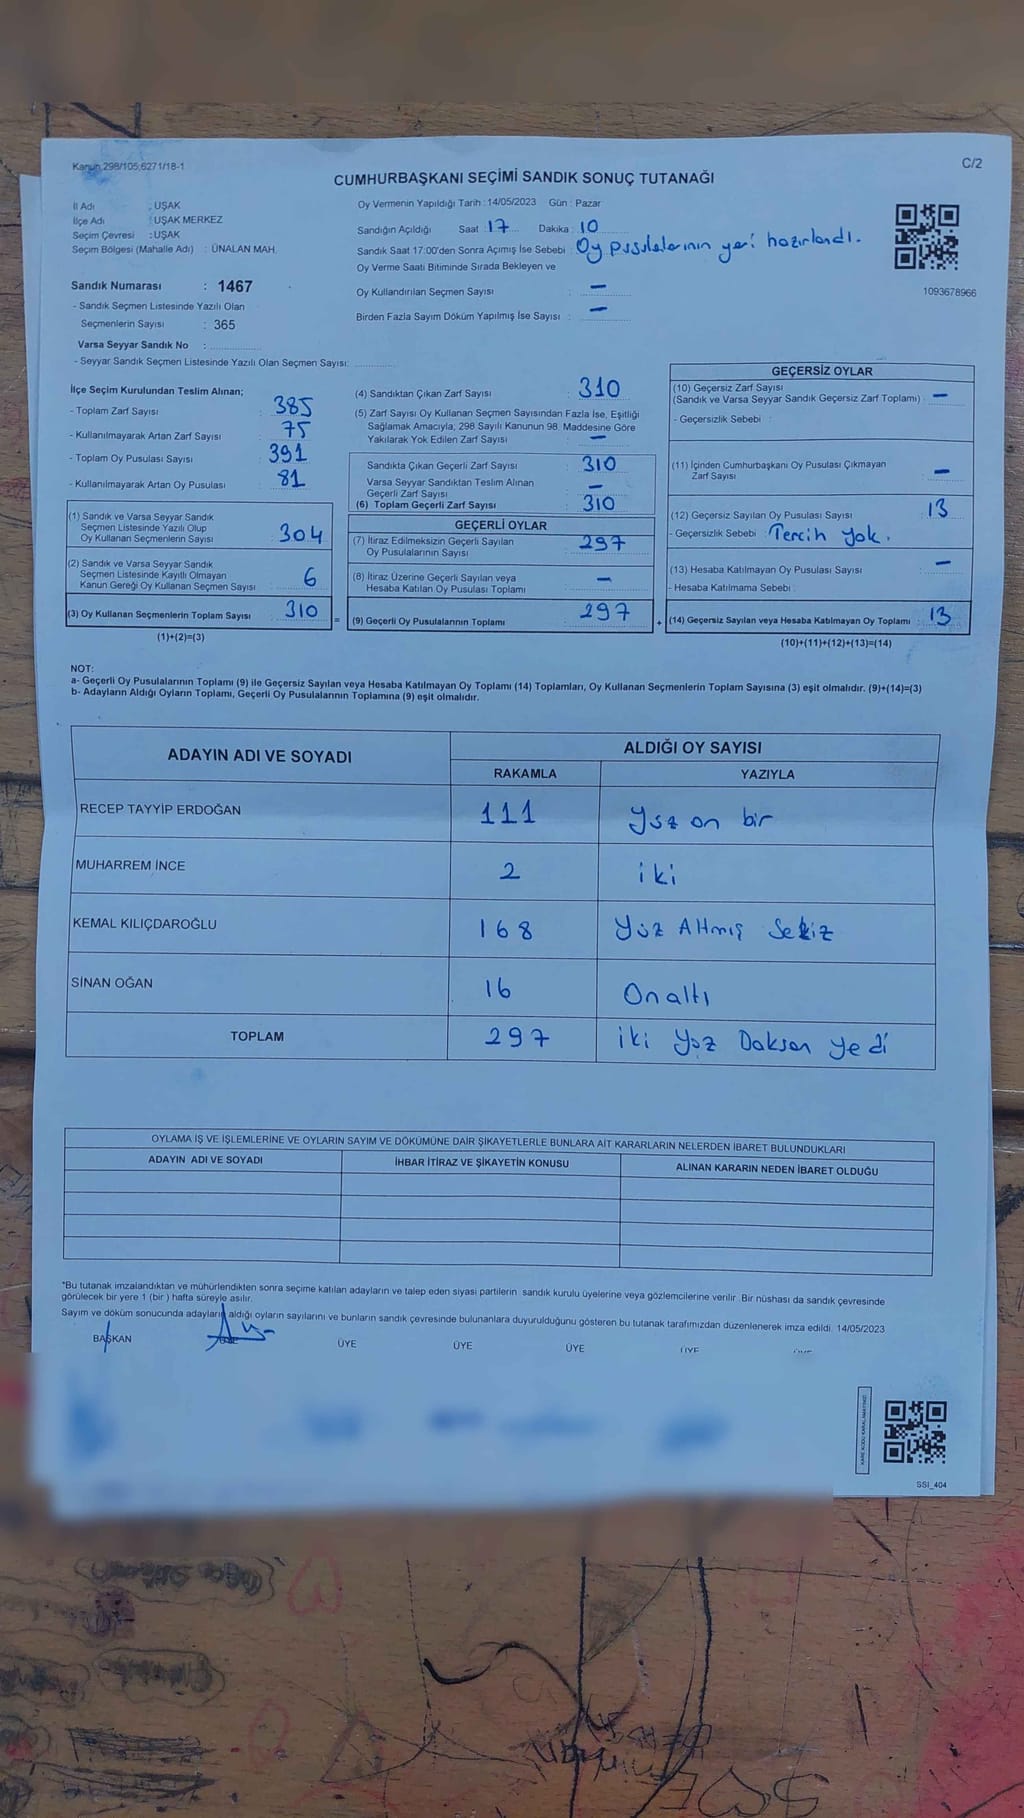 Kanun 298/105;6271/18-1
C/2
CUMHURBAŞKANI SEÇİMİ SANDIK SONUÇ TUTANAĞI
İl Adı : UŞAK
İlçe Adı : UŞAK MERKEZ
Seçim Çevresi : UŞAK
Seçim Bölgesi (Mahalle Adı) : ÜNALAN MAH.
Sandık Numarası : 1467
- Sandık Seçmen Listesinde Yazılı Olan
Seçmenlerin Sayısı : 365
Varsa Seyyar Sandık No :
- Seyyar Sandık Seçmen Listesinde Yazılı Olan Seçmen Sayısı:
Oy Vermenin Yapıldığı Tarih : 14/05/2023 Gün : Pazar
Sandığın Açıldığı Saat : 17 Dakika : 10
Sandık Saat 17:00'den Sonra Açımış İse Sebebi : Oy pusulalarının yeri hazırlandı.
Oy Verme Saati Bitiminde Sırada Bekleyen ve
Oy Kullandırılan Seçmen Sayısı : —
Birden Fazla Sayım Döküm Yapılmış İse Sayısı : —
1093678966
İlçe Seçim Kurulundan Teslim Alınan;
- Toplam Zarf Sayısı : 385
- Kullanılmayarak Artan Zarf Sayısı : 75
- Toplam Oy Pusulası Sayısı : 391
- Kullanılmayarak Artan Oy Pusulası : 81
(1) Sandık ve Varsa Seyyar Sandık
Seçmen Listesinde Yazılı Olup
Oy Kullanan Seçmenlerin Sayısı : 304
(2) Sandık ve Varsa Seyyar Sandık
Seçmen Listesinde Kayıtlı Olmayan
Kanun Gereği Oy Kullanan Seçmen Sayısı : 6
(3) Oy Kullanan Seçmenlerin Toplam Sayısı : 310
(1)+(2)=(3)
(4) Sandıktan Çıkan Zarf Sayısı : 310
(5) Zarf Sayısı Oy Kullanan Seçmen Sayısından Fazla İse, Eşitliği
Sağlamak Amacıyla, 298 Sayılı Kanunun 98. Maddesine Göre
Yakılarak Yok Edilen Zarf Sayısı : —
Sandıkta Çıkan Geçerli Zarf Sayısı : 310
Varsa Seyyar Sandıktan Teslim Alınan
Geçerli Zarf Sayısı : —
(6) Toplam Geçerli Zarf Sayısı : 310
GEÇERLİ OYLAR
(7) İtiraz Edilmeksizin Geçerli Sayılan
Oy Pusulalarının Sayısı : 297
(8) İtiraz Üzerine Geçerli Sayılan veya
Hesaba Katılan Oy Pusulası Toplamı : —
= (9) Geçerli Oy Pusulalarının Toplamı : 297
GEÇERSİZ OYLAR
(10) Geçersiz Zarf Sayısı
(Sandık ve Varsa Seyyar Sandık Geçersiz Zarf Toplamı) : —
- Geçersizlik Sebebi :
(11) İçinden Cumhurbaşkanı Oy Pusulası Çıkmayan
Zarf Sayısı : —
(12) Geçersiz Sayılan Oy Pusulası Sayısı : 13
- Geçersizlik Sebebi : Tercih yok.
(13) Hesaba Katılmayan Oy Pusulası Sayısı : —
- Hesaba Katılmama Sebebi :
+ (14) Geçersiz Sayılan veya Hesaba Katılmayan Oy Toplamı : 13
(10)+(11)+(12)+(13)=(14)
NOT:
a- Geçerli Oy Pusulalarının Toplamı (9) ile Geçersiz Sayılan veya Hesaba Katılmayan Oy Toplamı (14) Toplamları, Oy Kullanan Seçmenlerin Toplam Sayısına (3) eşit olmalıdır. (9)+(14)=(3)
b- Adayların Aldığı Oyların Toplamı, Geçerli Oy Pusulalarının Toplamına (9) eşit olmalıdır.
ADAYIN ADI VE SOYADI ALDIĞI OY SAYISI
RAKAMLA YAZIYLA
RECEP TAYYİP ERDOĞAN 111 Yüz on bir
MUHARREM İNCE 2 iki
KEMAL KILIÇDAROĞLU 168 Yüz Altmış Sekiz
SİNAN OĞAN 16 Onaltı
TOPLAM 297 iki Yüz Doksan Yedi
OYLAMA İŞ VE İŞLEMLERİNE VE OYLARIN SAYIM VE DÖKÜMÜNE DAİR ŞİKAYETLERLE BUNLARA AİT KARARLARIN NELERDEN İBARET BULUNDUKLARI
ADAYIN ADI VE SOYADI İHBAR İTİRAZ VE ŞİKAYETİN KONUSU ALINAN KARARIN NEDEN İBARET OLDUĞU
*Bu tutanak imzalandıktan ve mühürlendikten sonra seçime katılan adayların ve talep eden siyasi partilerin sandık kurulu üyelerine veya gözlemcilerine verilir. Bir nüshası da sandık çevresinde
görülecek bir yere 1 (bir) hafta süreyle asılır.
Sayım ve döküm sonucunda adayların aldığı oyların sayılarını ve bunların sandık çevresinde bulunanlara duyurulduğunu gösteren bu tutanak tarafımızdan düzenlenerek imza edildi. 14/05/2023
BAŞKAN ÜYE ÜYE ÜYE ÜYE
SSI_404